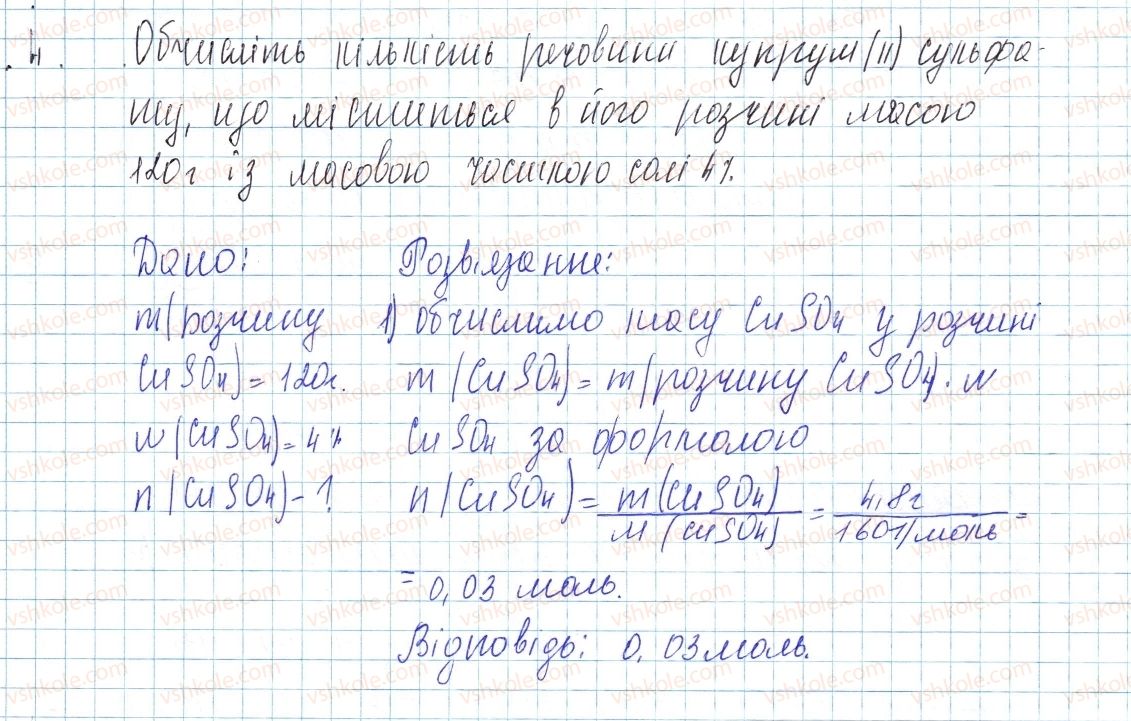 4. Обчисліть кількість речовини купрум (II) сульфа-
ту, що міститься в його розчині масою
120г із масовою часткою солі 4%.
Дано:
m(розчину
CuSO4) = 120г.
w(CuSO4) = 4%
n(CuSO4) - ?
Розв'язання:
1) обчислимо масу CuSO4 у розчині
m(CuSO4) = m(розчину CuSO4) · w
CuSO4 за формолою
n(CuSO4) = m(CuSO4) / M(CuSO4) = 4,8г / 160г/моль =
= 0,03 моль.
Відповідь: 0,03 моль.
vshkole.com